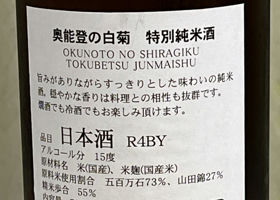 奥能登の白菊 特別純米酒
OKUNOTO NO SHIRAGIKU
TOKUBETSU JUNMAISHU
旨みがありながらすっきりとした味わいの純米
酒。穏やかな香りは料理との相性も抜群です。
燗酒でも冷酒でもお楽しみ頂けます。
品目 日本酒 R4BY
アルコール分 15度
原材料名 米(国産)、米麹(国産米)
原料米使用割合 五百万石73%、山田錦27%
精米歩合 55%